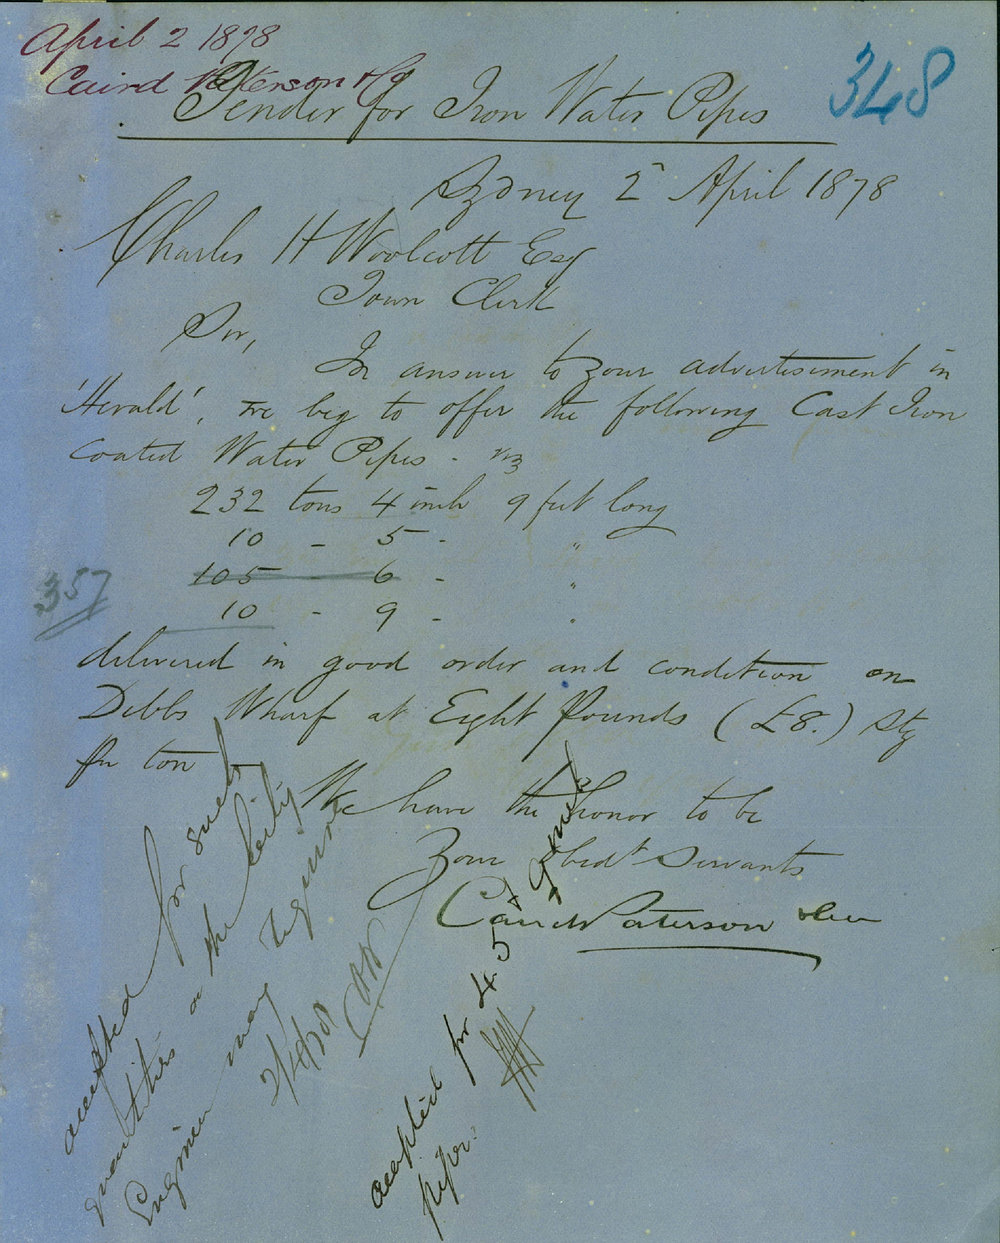 April 2 1878
Caird Paterson & Co
348
Tender for Iron Water Pipes
Sydney 2 April 1878
Charles H Woolcott Esq
Town Clerk
Sir,
In answer to your advertisement in
'Herald', we beg to offer the following Cast Iron
coated Water Pipes - viz
232 tons 4 inch 9 feet long
10 - 5 - "
105 - 6 - "
357
10 - 9 - "
delivered in good order and condition on
Dibbs Wharf at Eight Pounds (£8.) Stg
per ton
We have the honor to be
Your obedt Servants
Caird Paterson & Co
accepted for such
quantities as the City
Engineer may require
accepted for 4. 5 & 9 inch
pipes.